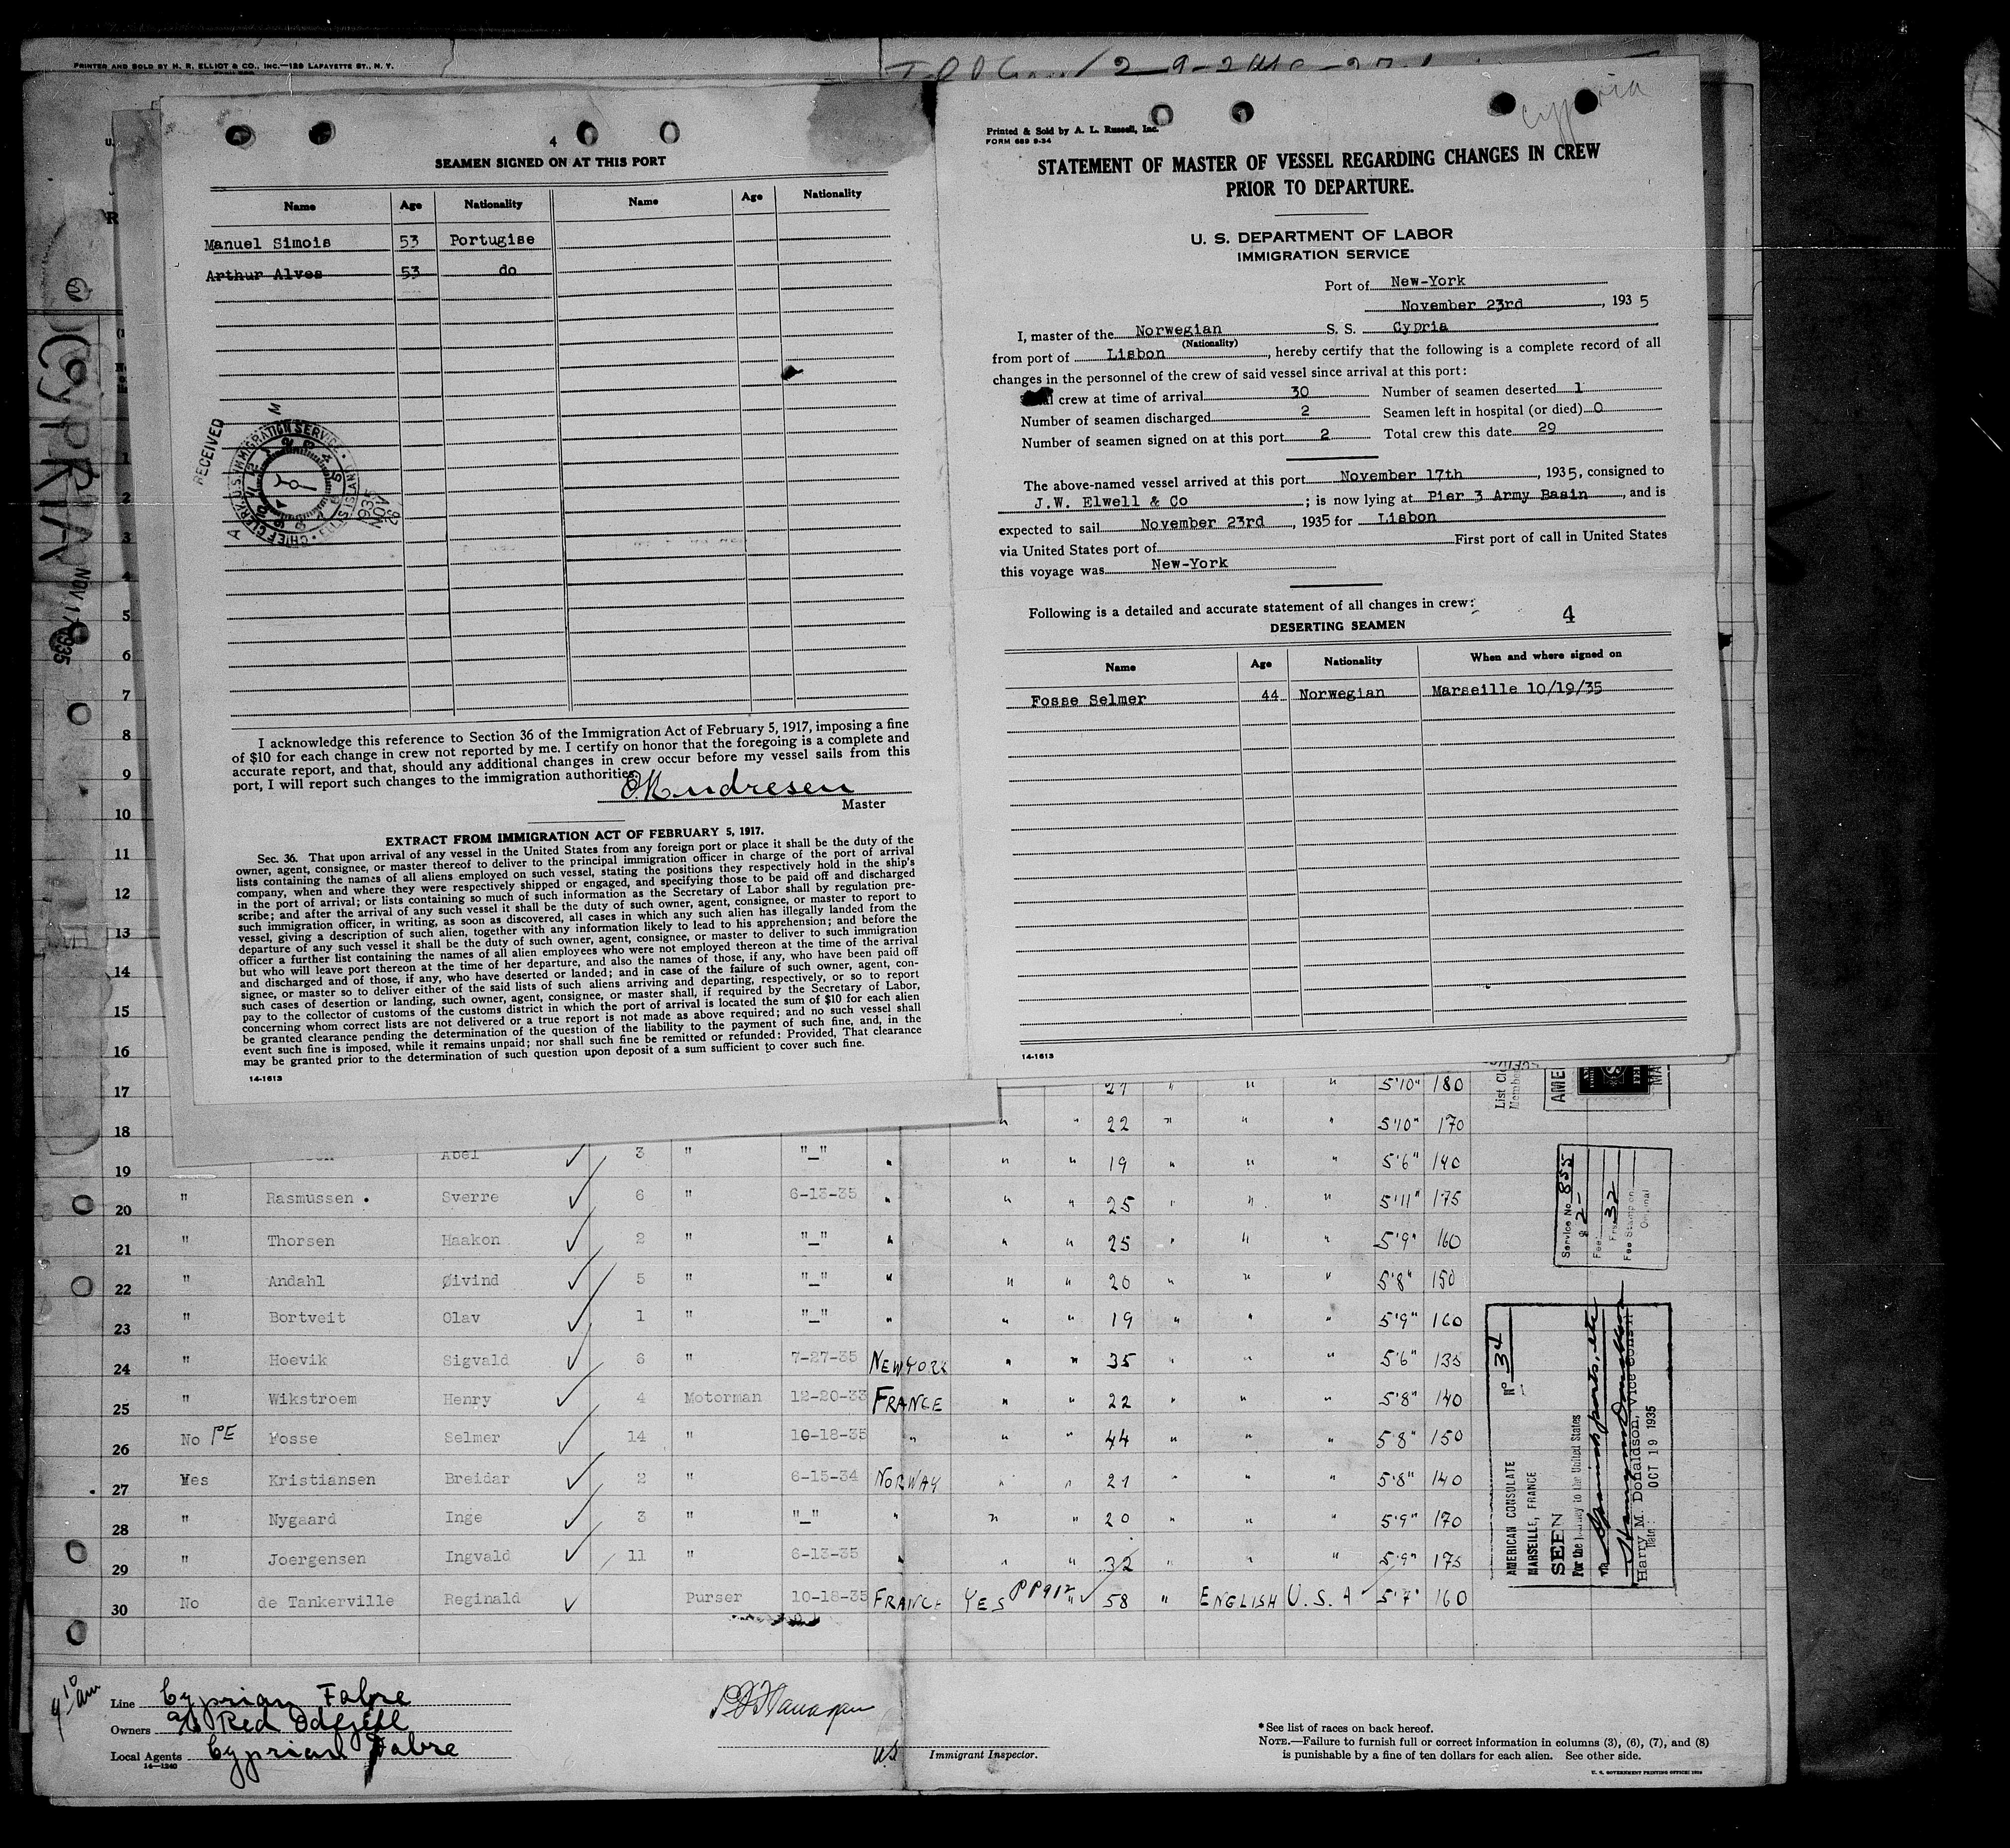 PRINTED AND SOLD BY H. R. ELLIOT & CO., INC.—129 LAFAYETTE ST., N. Y.
4
SEAMEN SIGNED ON AT THIS PORT
Name Age Nationality Name Age Nationality
Manuel Simois 53 Portugise
Arthur Alves 53 do
RECEIVED
CHIEF CLERK U.S. IMMIGRATION SERVICE
ELLIS ISLAND
1935 NOV 26
I acknowledge this reference to Section 36 of the Immigration Act of February 5, 1917, imposing a fine
of $10 for each change in crew not reported by me. I certify on honor that the foregoing is a complete and
accurate report, and that, should any additional changes in crew occur before my vessel sails from this
port, I will report such changes to the immigration authorities.
Andresen
Master
EXTRACT FROM IMMIGRATION ACT OF FEBRUARY 5, 1917.
Sec. 36. That upon arrival of any vessel in the United States from any foreign port or place it shall be the duty of the
owner, agent, consignee, or master thereof to deliver to the principal immigration officer in charge of the port of arrival
lists containing the names of all aliens employed on such vessel, stating the positions they respectively hold in the ship's
company, when and where they were respectively shipped or engaged, and specifying those to be paid off and discharged
in the port of arrival; or lists containing so much of such information as the Secretary of Labor shall by regulation pre-
scribe; and after the arrival of any such vessel it shall be the duty of such owner, agent, consignee, or master to report to
such immigration officer, in writing, as soon as discovered, all cases in which any such alien has illegally landed from the
vessel, giving a description of such alien, together with any information likely to lead to his apprehension; and before the
departure of any such vessel it shall be the duty of such owner, agent, consignee, or master to deliver to such immigration
officer a further list containing the names of all alien employees who were not employed thereon at the time of the arrival
but who will leave port thereon at the time of her departure, and also the names of those, if any, who have been paid off
and discharged and of those, if any, who have deserted or landed; and in case of the failure of such owner, agent, con-
signee, or master so to deliver either of the said lists of such aliens arriving and departing, respectively, or so to report
such cases of desertion or landing, such owner, agent, consignee, or master shall, if required by the Secretary of Labor,
pay to the collector of customs of the customs district in which the port of arrival is located the sum of $10 for each alien
concerning whom correct lists are not delivered or a true report is not made as above required; and no such vessel shall
be granted clearance pending the determination of the question of the liability to the payment of such fine, and, in the
event such fine is imposed, while it remains unpaid; nor shall such fine be remitted or refunded: Provided, That clearance
may be granted prior to the determination of such question upon deposit of a sum sufficient to cover such fine.
14-1613
Cypria
Printed & Sold by A. L. Russell, Inc.
FORM 689 9-34
STATEMENT OF MASTER OF VESSEL REGARDING CHANGES IN CREW
PRIOR TO DEPARTURE.
U. S. DEPARTMENT OF LABOR
IMMIGRATION SERVICE
Port of New-York
November 23rd, 1935
I, master of the Norwegian S. S. Cypria
(Nationality)
from port of Lisbon, hereby certify that the following is a complete record of all
changes in the personnel of the crew of said vessel since arrival at this port:
crew at time of arrival 30 Number of seamen deserted 1
Number of seamen discharged 2 Seamen left in hospital (or died) 0
Number of seamen signed on at this port 2 Total crew this date 29
The above-named vessel arrived at this port November 17th, 1935, consigned to
J.W. Elwell & Co; is now lying at Pier 3 Army Basin, and is
expected to sail November 23rd, 1935 for Lisbon
via United States port of First port of call in United States
this voyage was New-York
Following is a detailed and accurate statement of all changes in crew:
4
DESERTING SEAMEN
Name Age Nationality When and where signed on
Fosse Selmer 44 Norwegian Marseille 10/19/35
14-1613
CYPRIA NOV 17 1935
1
2
3
4
5
6
7
8
9
10
11
12
13
14
15
16
17 27 " " " 5'10" 180
18 " " 22 " " " 5'10" 170
19 Abel 3 " "_" " " " 19 " " " 5'6" 140
20 " Rasmussen Sverre 6 " 6-13-35 " " " 25 " " " 5'11" 175
21 " Thorsen Haakon 2 " "_" " " " 25 " " " 5'9" 160
22 " Andahl Øivind 5 " "_" " " " 20 " " " 5'8" 150
23 " Bortveit Olav 1 " "_" " " " 19 " " " 5'9" 160
24 " Hoevik Sigvald 6 " 7-27-35 NEWYORK " " 35 " " " 5'6" 135
25 " Wikstroem Henry 4 Motorman 12-20-33 FRANCE " " 22 " " " 5'8" 140
26 No Fosse Selmer 14 " 10-18-35 " " " 44 " " " 5'8" 150
27 Yes Kristiansen Breidar 2 " 6-15-34 NORWAY " " 21 " " " 5'8" 140
28 " Nygaard Inge 3 " "_" " " " 20 " " " 5'9" 170
29 " Joergensen Ingvald 11 " 6-13-35 " " " 32 " " " 5'9" 175
30 No de Tankerville Reginald Purser 10-18-35 FRANCE YES PP912 " 58 " ENGLISH U.S.A 5'7" 160
List
AME
Service No. 855
Fee: $2-
Frs. 32
Fee Stamp on
Original
No 34
AMERICAN CONSULATE
MARSEILLE, FRANCE
SEEN
For the journey to the United States
Harry M. Donaldson, Vice Consul
Date: OCT 19 1935
9 10 am
Line Cyprian Fabre
Owners Red
Local Agents Cyprian Fabre
14—1240
Flanagan
US Immigrant Inspector.
* See list of races on back hereof.
NOTE.—Failure to furnish full or correct information in columns (3), (6), (7), and (8)
is punishable by a fine of ten dollars for each alien. See other side.
U. S. GOVERNMENT PRINTING OFFICE: